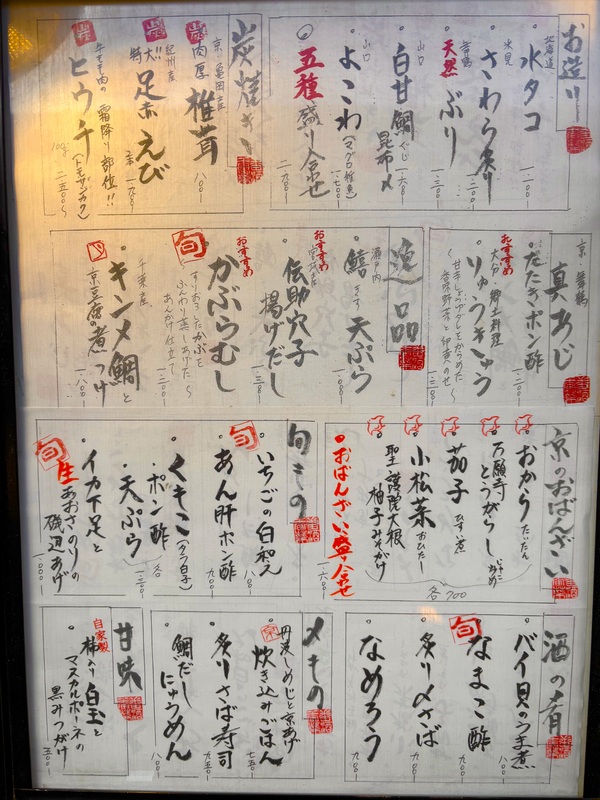 お造り
北海道
水タコ
氷見
さわら炙り
舞鶴
天然 ぶり
山口
白甘鯛 昆布〆
ぐじ
一六〇〇
山口
よこわ(マグロ稚魚)
一.七〇〇
五種盛り合せ
二.九〇〇
炭焼き
京 亀岡産
肉厚 椎茸
八〇〇
紀州産
特大!! 足赤えび
牛モモ肉の霜降り部位!!
ヒウチ(トモサンカク)
100g
二.五〇〇~
京 舞鶴
真あじ
たたきポン酢
一.二〇〇
おすすめ
大分・郷土料理
りゅうきゅう
一.二〇〇
逸品
瀬戸内
鱚 天ぷら
きす
一.〇〇〇
おすすめ
伝助穴子
揚げだし
おすすめ
旬 かぶらむし
すりおろしたかぶと
ふんわり蒸しあげた~
あんかけ仕立て
千葉産
キンメ鯛と
京豆腐の煮つけ
一.八〇〇
京のおばんざい
おから たいたん
万願寺
とうがらし
茄子 ひすい煮
小松菜 おひたし
聖護院大根
柚子みそがけ
各700
おばんざい盛合せ
一.六〇〇
旬もの
いちごの白和え
八〇〇
旬 あん肝ポン酢
九〇〇
くもこ(タラ白子)
・ポン酢
・天ぷら
各
旬 生あおさのりの
イカ下足と
磯辺あげ
一.〇〇〇
酒の肴
バイ貝のうま煮
八〇〇
旬 なまこ酢
九〇〇
炙り〆さば
九〇〇
なめろう
〆もの
丹波しめじと京あげ
京 炊き込みごはん
七五〇
炙りさば寿司
九五〇
鯛だし
にゅうめん
八〇〇
甘味
自家製
柿入り白玉と
マスカルポーネの
黒みつがけ
五〇〇